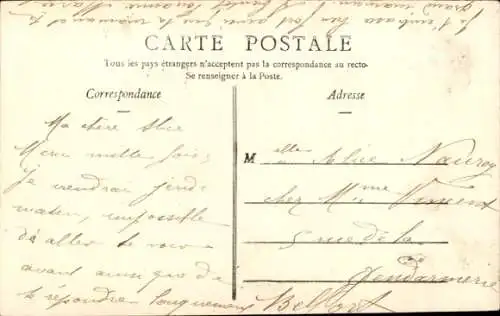 CARTE POSTALE
Tous les pays étrangers n'acceptent pas la correspondance au recto-
Se renseigner à la Poste.
Correspondance
Ma chère Alice
Merci mille fois
Je viendrai jeudi
matin, impossible
d'aller te voir
avant ainsi que de
te répondre longuement
Adresse
Melle Alice Nauroy
chez Mme Vincent
5 rue de la
Gendarmerie
Belfort